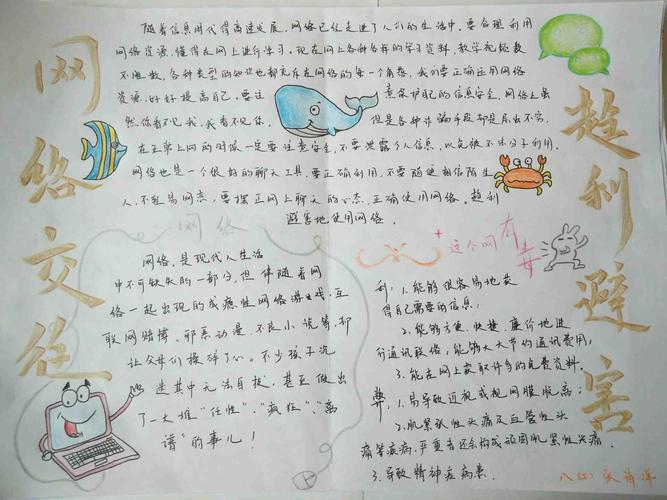 网络交往
趋利避害
随着信息时代得高速发展,网络已经走进了人们的生活中,要合理利用
网络资源,懂得在网上进行学习。现在网上各种各样的学习资料,教学视频数
不胜数,各种类型的知识也都充斥在网络的每一个角落,我们要正确运用网络
资源,好好提高自己。要注意保护自己的信息安全,网络上虽
然你看不见我,我看不见你,但是各种诈骗手段都是层出不穷,
在正常上网的时候一定要注意安全,不要泄露个人信息,以免被不法分子利用。
网络也是一个很好的聊天工具,要正确利用,不要随便相信陌生
人,不轻易网恋,要摆正网上聊天的心态,正确使用网络,趋利
避害地使用网络。
网络
网络,是现代人生活
中不可缺失的一部分,但伴随着网
络一起出现的成瘾性网络游戏、互
联网赌博、邪恶动漫、不良小说等,却
让父母们操碎了心。不少孩子沉
迷其中无法自拔,甚至做出
了一大堆“任性”、“疯狂”、“离
谱”的事儿!
这个网有毒
利:1.能够很容易地获
得自己需要的信息;
2.能够方便、快捷、廉价地进
行通讯联络,能够大大节约通讯费用;
3.能在网上获取许多的免费资料。
弊:1.易导致近视或视网膜脱离;
2.肌紧张性头痛及血管性头
痛等疾病,严重者还会构成顽固肌紧性头痛.
3.导致精神疾病患.